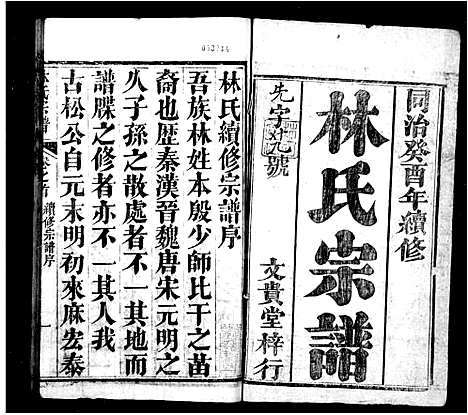 同治癸酉年續修
林氏宗譜
文貴堂梓行
林氏續修宗譜序
吾族林姓本殷少師比干之苗
裔也歴秦漢晉魏唐宋元明之
久子孫之散處者不一其地而
譜牒之修者亦不一其人我
古松公自元末明初來麻宏泰
續修宗譜序
一